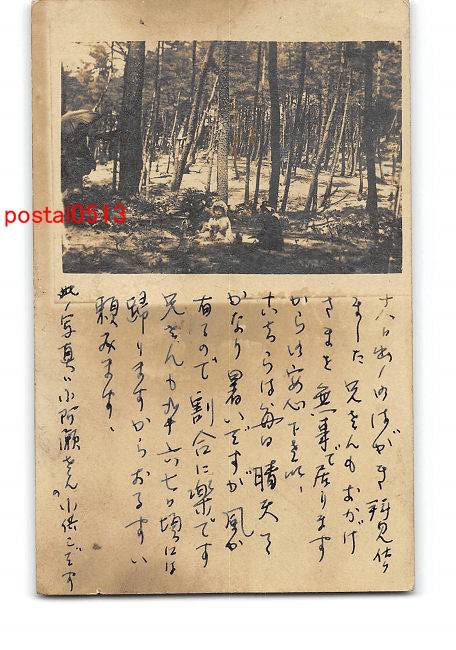 十八日出ノはがき拝見仕り
ました 兄さんもおかげ
さまを無事で居ります
からは安心下さい、
こちらは毎日晴天で
かなり暑いですが風が
有るので割合に楽です
兄さんも 六七日頃には
歸りますからおるすい
頼みます、
此ノ写真ハ小阿瀬さんの小供さんです
postal0513